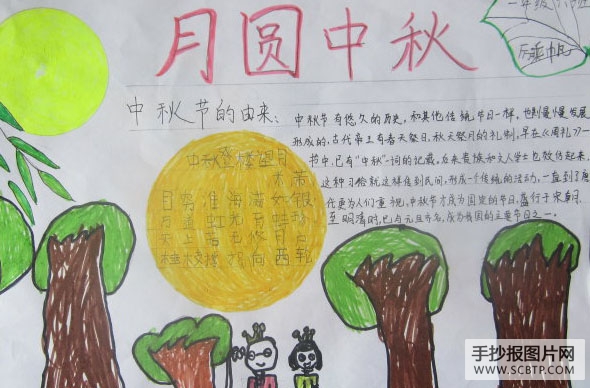 月圆中秋
一年级六班
中秋节的由来：
中秋节有悠久的历史，和其他传统节日一样，也是慢慢发展
形成的，古代帝王有春天祭日，秋天祭月的礼制，早在《周礼》一
书中，已有“中秋”一词的记载。后来贵族和文人学士也效仿起来，
这种习俗就这样传到民间，形成一个传统的活动，一直到了唐
代更为人们重视，中秋节才成为固定的节日，盛行于宋朝，
至明清时，已与元旦齐名，成为我国的主要节日之一。
中秋登楼望月
米芾
目穷淮海满如银
道虹光育蚌珍
天上若无修月户
桂枝撑损向西轮
手抄报图片网
WWW.SCBTP.COM